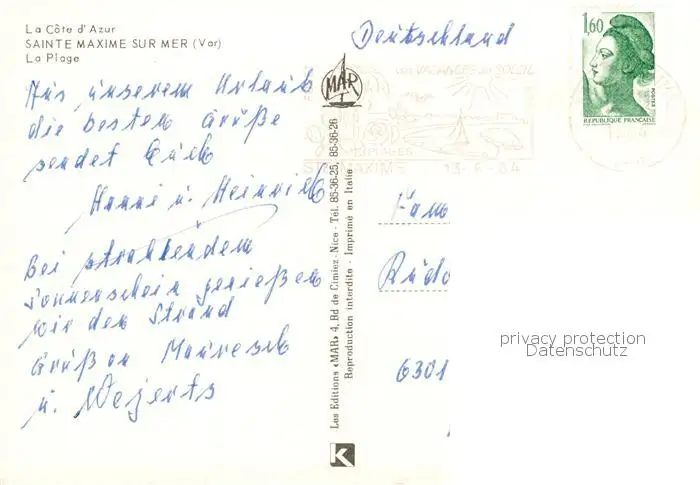 La Côte d'Azur
SAINTE MAXIME SUR MER (Var)
La Plage
Deutschland
Aus unserem Urlaub
die besten Grüße
sendet Euch
Hanni u. Heinrich
Bei strahlendem
Sonnenschein genießen
wir den Strand
Gruß an
u. Wejerts
MAR
Les Editions «MAR» 4, Bd de Cimiez - Nice - Tél. 85-36-25, 85-36-26
Reproduction interdite - Imprimé en Italie
K
VACANCES SOLEIL
PLAGES
STE MAXIME 13-6-84
1,60
POSTES
REPUBLIQUE FRANÇAISE
Fam
Rudo
6301
privacy protection
Datenschutz